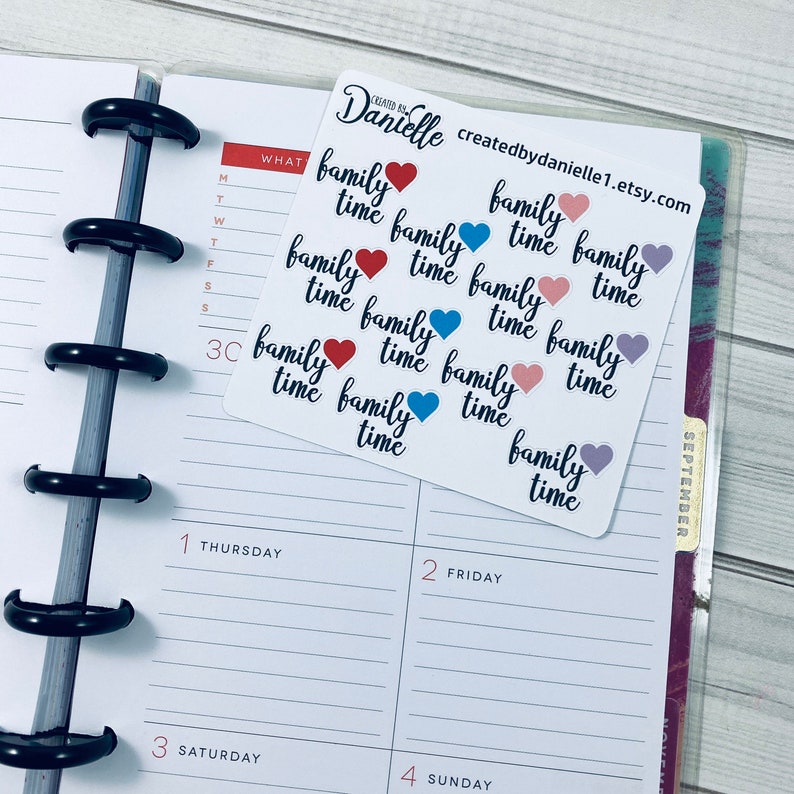 CREATED BY
Danielle
createdbydanielle1.etsy.com
family
time
family
time
family
time
family
time
family
time
family
time
family
time
family
time
family
time
family
time
family
time
family
time
WHAT
M
T
W
T
F
S
S
30
1 THURSDAY
2 FRIDAY
3 SATURDAY
4 SUNDAY
SEPTEMBER
NOVEM